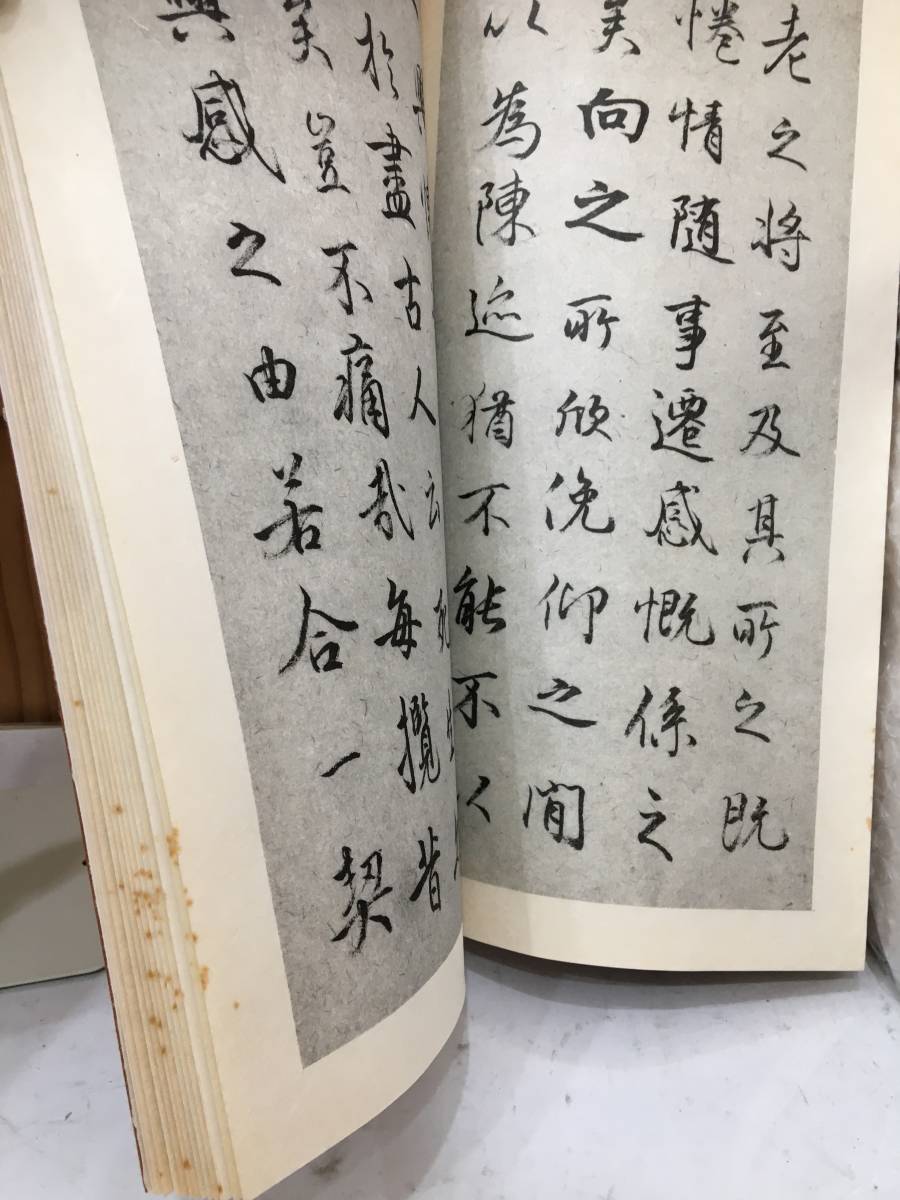 老之将至及其所之既
惓情随事遷感慨係之
矣向之所欣俛仰之閒
以為陳迹猶不能不以
於盡古人云死生
矣豈不痛哉每攬昔
興感之由若合一契